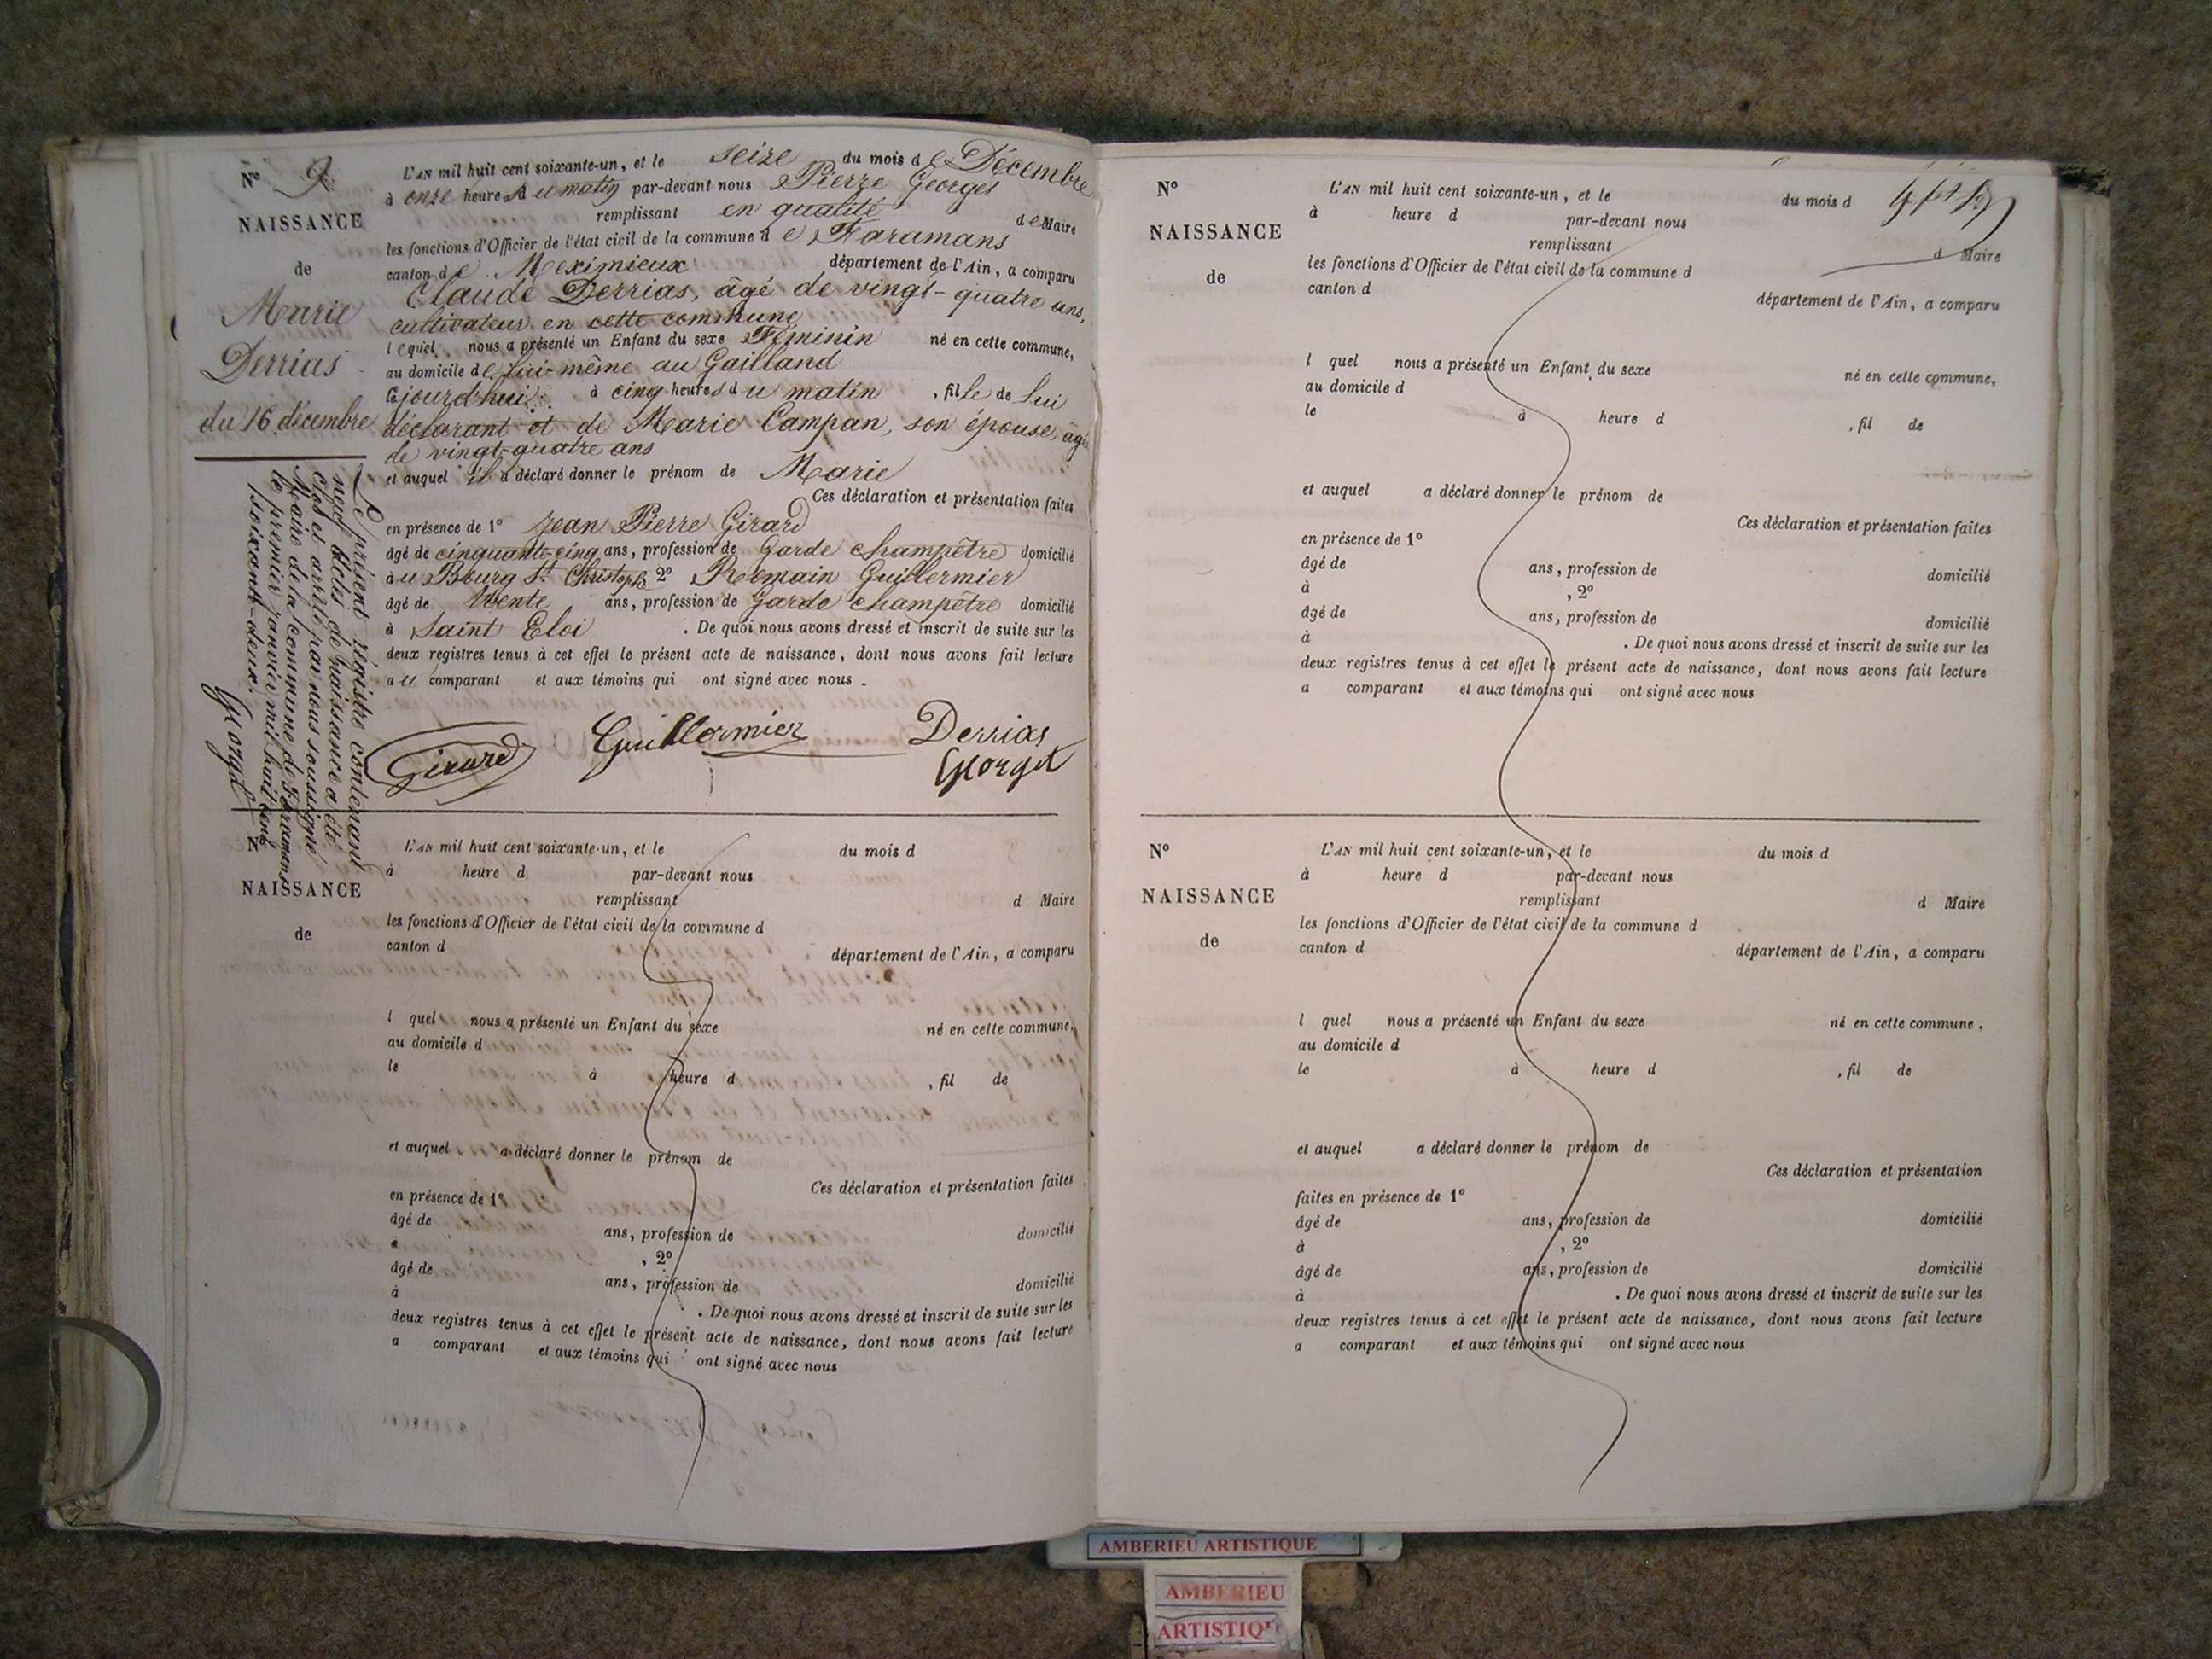 N° 9
NAISSANCE
de
Marie
Derrias
du 16 décembre
L'AN mil huit cent soixante-un, et le seize du mois de Décembre
à onze heure du matin par-devant nous Pierre Georges
remplissant en qualité de Maire
les fonctions d'Officier de l'état civil de la commune de Faramans
canton de Meximieux département de l'Ain, a comparu
Claude Derrias, âgé de vingt-quatre ans,
cultivateur en cette commune
lequel nous a présenté un Enfant du sexe Féminin né en cette commune,
au domicile de lui-même au Gailland
cejourd'hui à cinq heures du matin, fille de lui
déclarant et de Marie Campan, son épouse, âgée
de vingt-quatre ans
et auquel il a déclaré donner le prénom de Marie
Ces déclaration et présentation faites
en présence de 1° Jean Pierre Girard
âgé de cinquante-cinq ans, profession de Garde champêtre domicilié
à u Bourg St Christophe 2° Romain Guillermier
âgé de trente ans, profession de Garde champêtre domicilié
à Saint Eloi . De quoi nous avons dressé et inscrit de suite sur les
deux registres tenus à cet effet le présent acte de naissance, dont nous avons fait lecture
au comparant et aux témoins qui ont signé avec nous .
Girard Guillermier Derrias
Georges
Le présent régistre contenant
neuf actes de naissance a été
clos et arrêté par nous soussigné
Maire de la commune de Faramans
le premier janvier mil huit cent
soixante-deux.
Georges
N
NAISSANCE
de
L'AN mil huit cent soixante-un, et le du mois d
à heure d par-devant nous
remplissant d Maire
les fonctions d'Officier de l'état civil de la commune d
canton d département de l'Ain, a comparu
l quel nous a présenté un Enfant du sexe né en cette commune,
au domicile d
le à heure d , fil de
et auquel a déclaré donner le prénom de
Ces déclaration et présentation faites
en présence de 1°
âgé de ans, profession de domicilié
à , 2°
âgé de ans, profession de domicilié
à . De quoi nous avons dressé et inscrit de suite sur les
deux registres tenus à cet effet le présent acte de naissance, dont nous avons fait lecture
a comparant et aux témoins qui ont signé avec nous
N°
NAISSANCE
de
L'AN mil huit cent soixante-un, et le du mois d
à heure d par-devant nous
remplissant d Maire
les fonctions d'Officier de l'état civil de la commune d
canton d département de l'Ain, a comparu
l quel nous a présenté un Enfant du sexe né en cette commune,
au domicile d
le à heure d , fil de
et auquel a déclaré donner le prénom de
Ces déclaration et présentation faites
en présence de 1°
âgé de ans, profession de domicilié
à , 2°
âgé de ans, profession de domicilié
à . De quoi nous avons dressé et inscrit de suite sur les
deux registres tenus à cet effet le présent acte de naissance, dont nous avons fait lecture
a comparant et aux témoins qui ont signé avec nous
N°
NAISSANCE
de
L'AN mil huit cent soixante-un, et le du mois d
à heure d par-devant nous
remplissant d Maire
les fonctions d'Officier de l'état civil de la commune d
canton d département de l'Ain, a comparu
l quel nous a présenté un Enfant du sexe né en cette commune,
au domicile d
le à heure d , fil de
et auquel a déclaré donner le prénom de
Ces déclaration et présentation
faites en présence de 1°
âgé de ans, profession de domicilié
à , 2°
âgé de ans, profession de domicilié
à . De quoi nous avons dressé et inscrit de suite sur les
deux registres tenus à cet effet le présent acte de naissance, dont nous avons fait lecture
a comparant et aux témoins qui ont signé avec nous
AMBERIEU ARTISTIQUE
AMBERIEU
ARTISTIQU